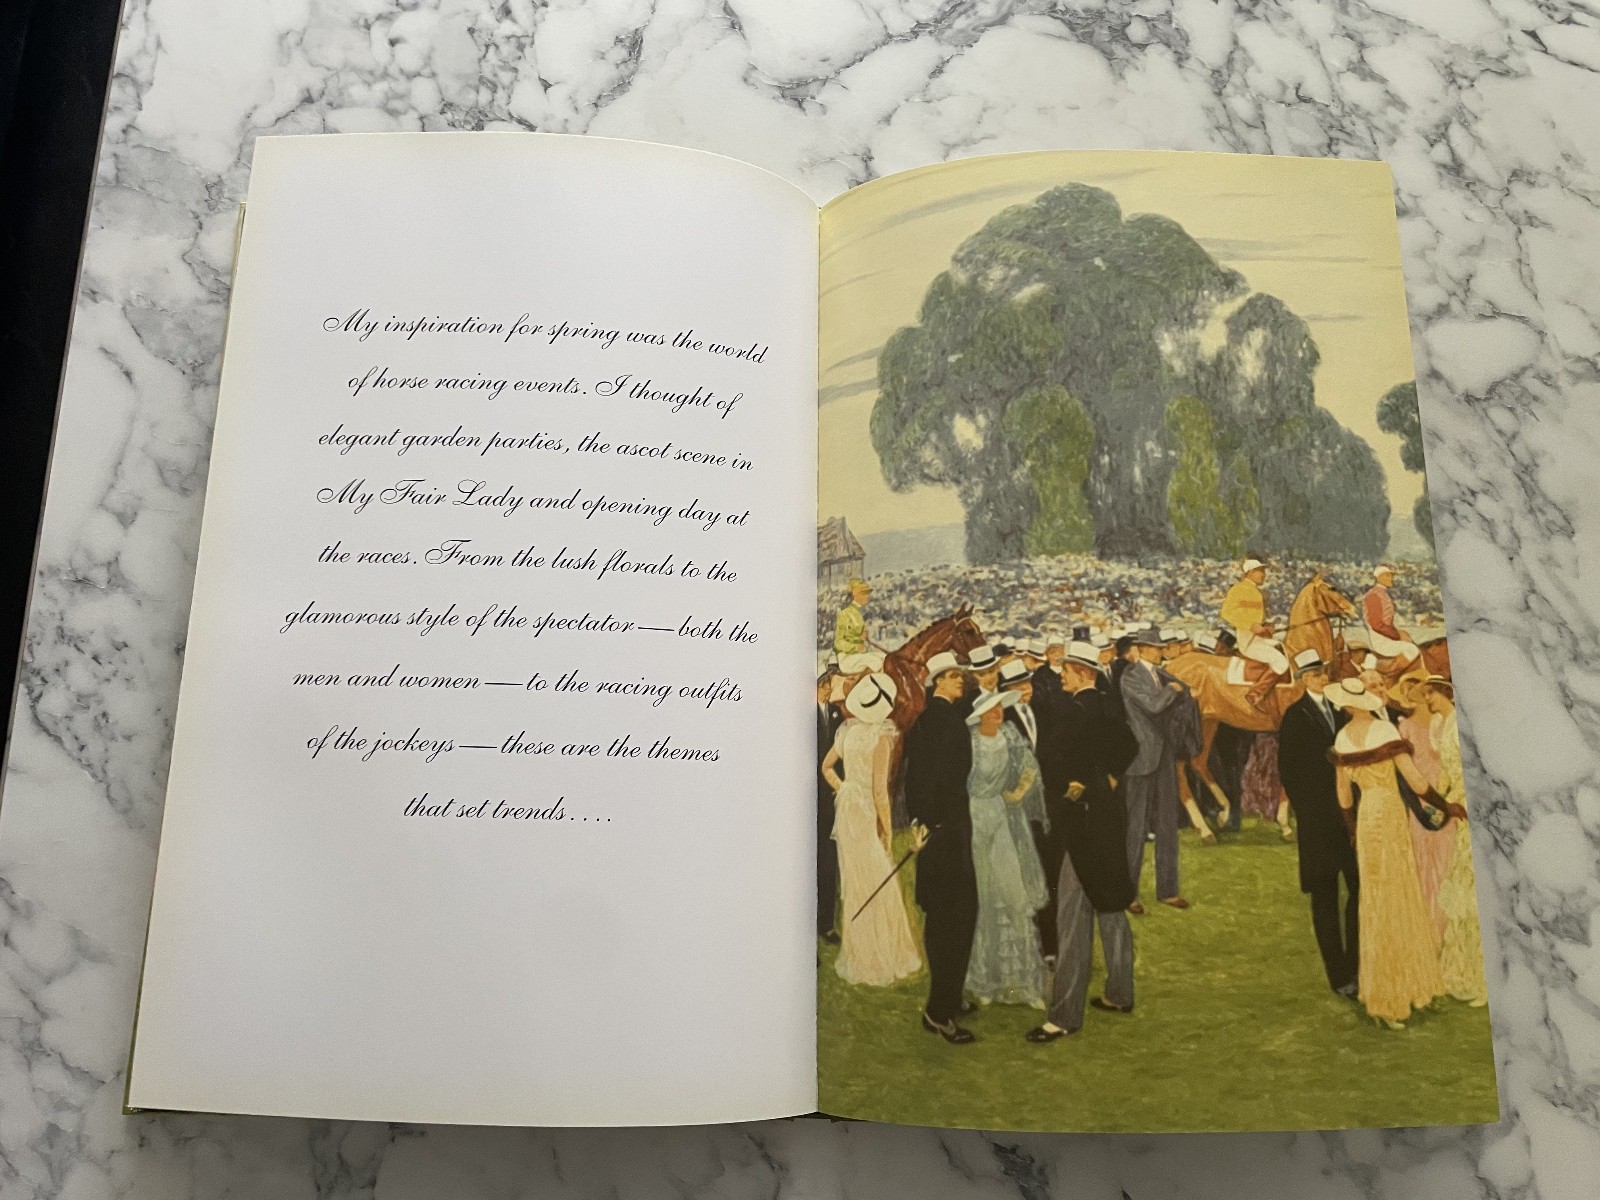 My inspiration for spring was the world
of horse racing events. I thought of
elegant garden parties, the ascot scene in
My Fair Lady and opening day at
the races. From the lush florals to the
glamorous style of the spectator — both the
men and women — to the racing outfits
of the jockeys — these are the themes
that set trends . . . .